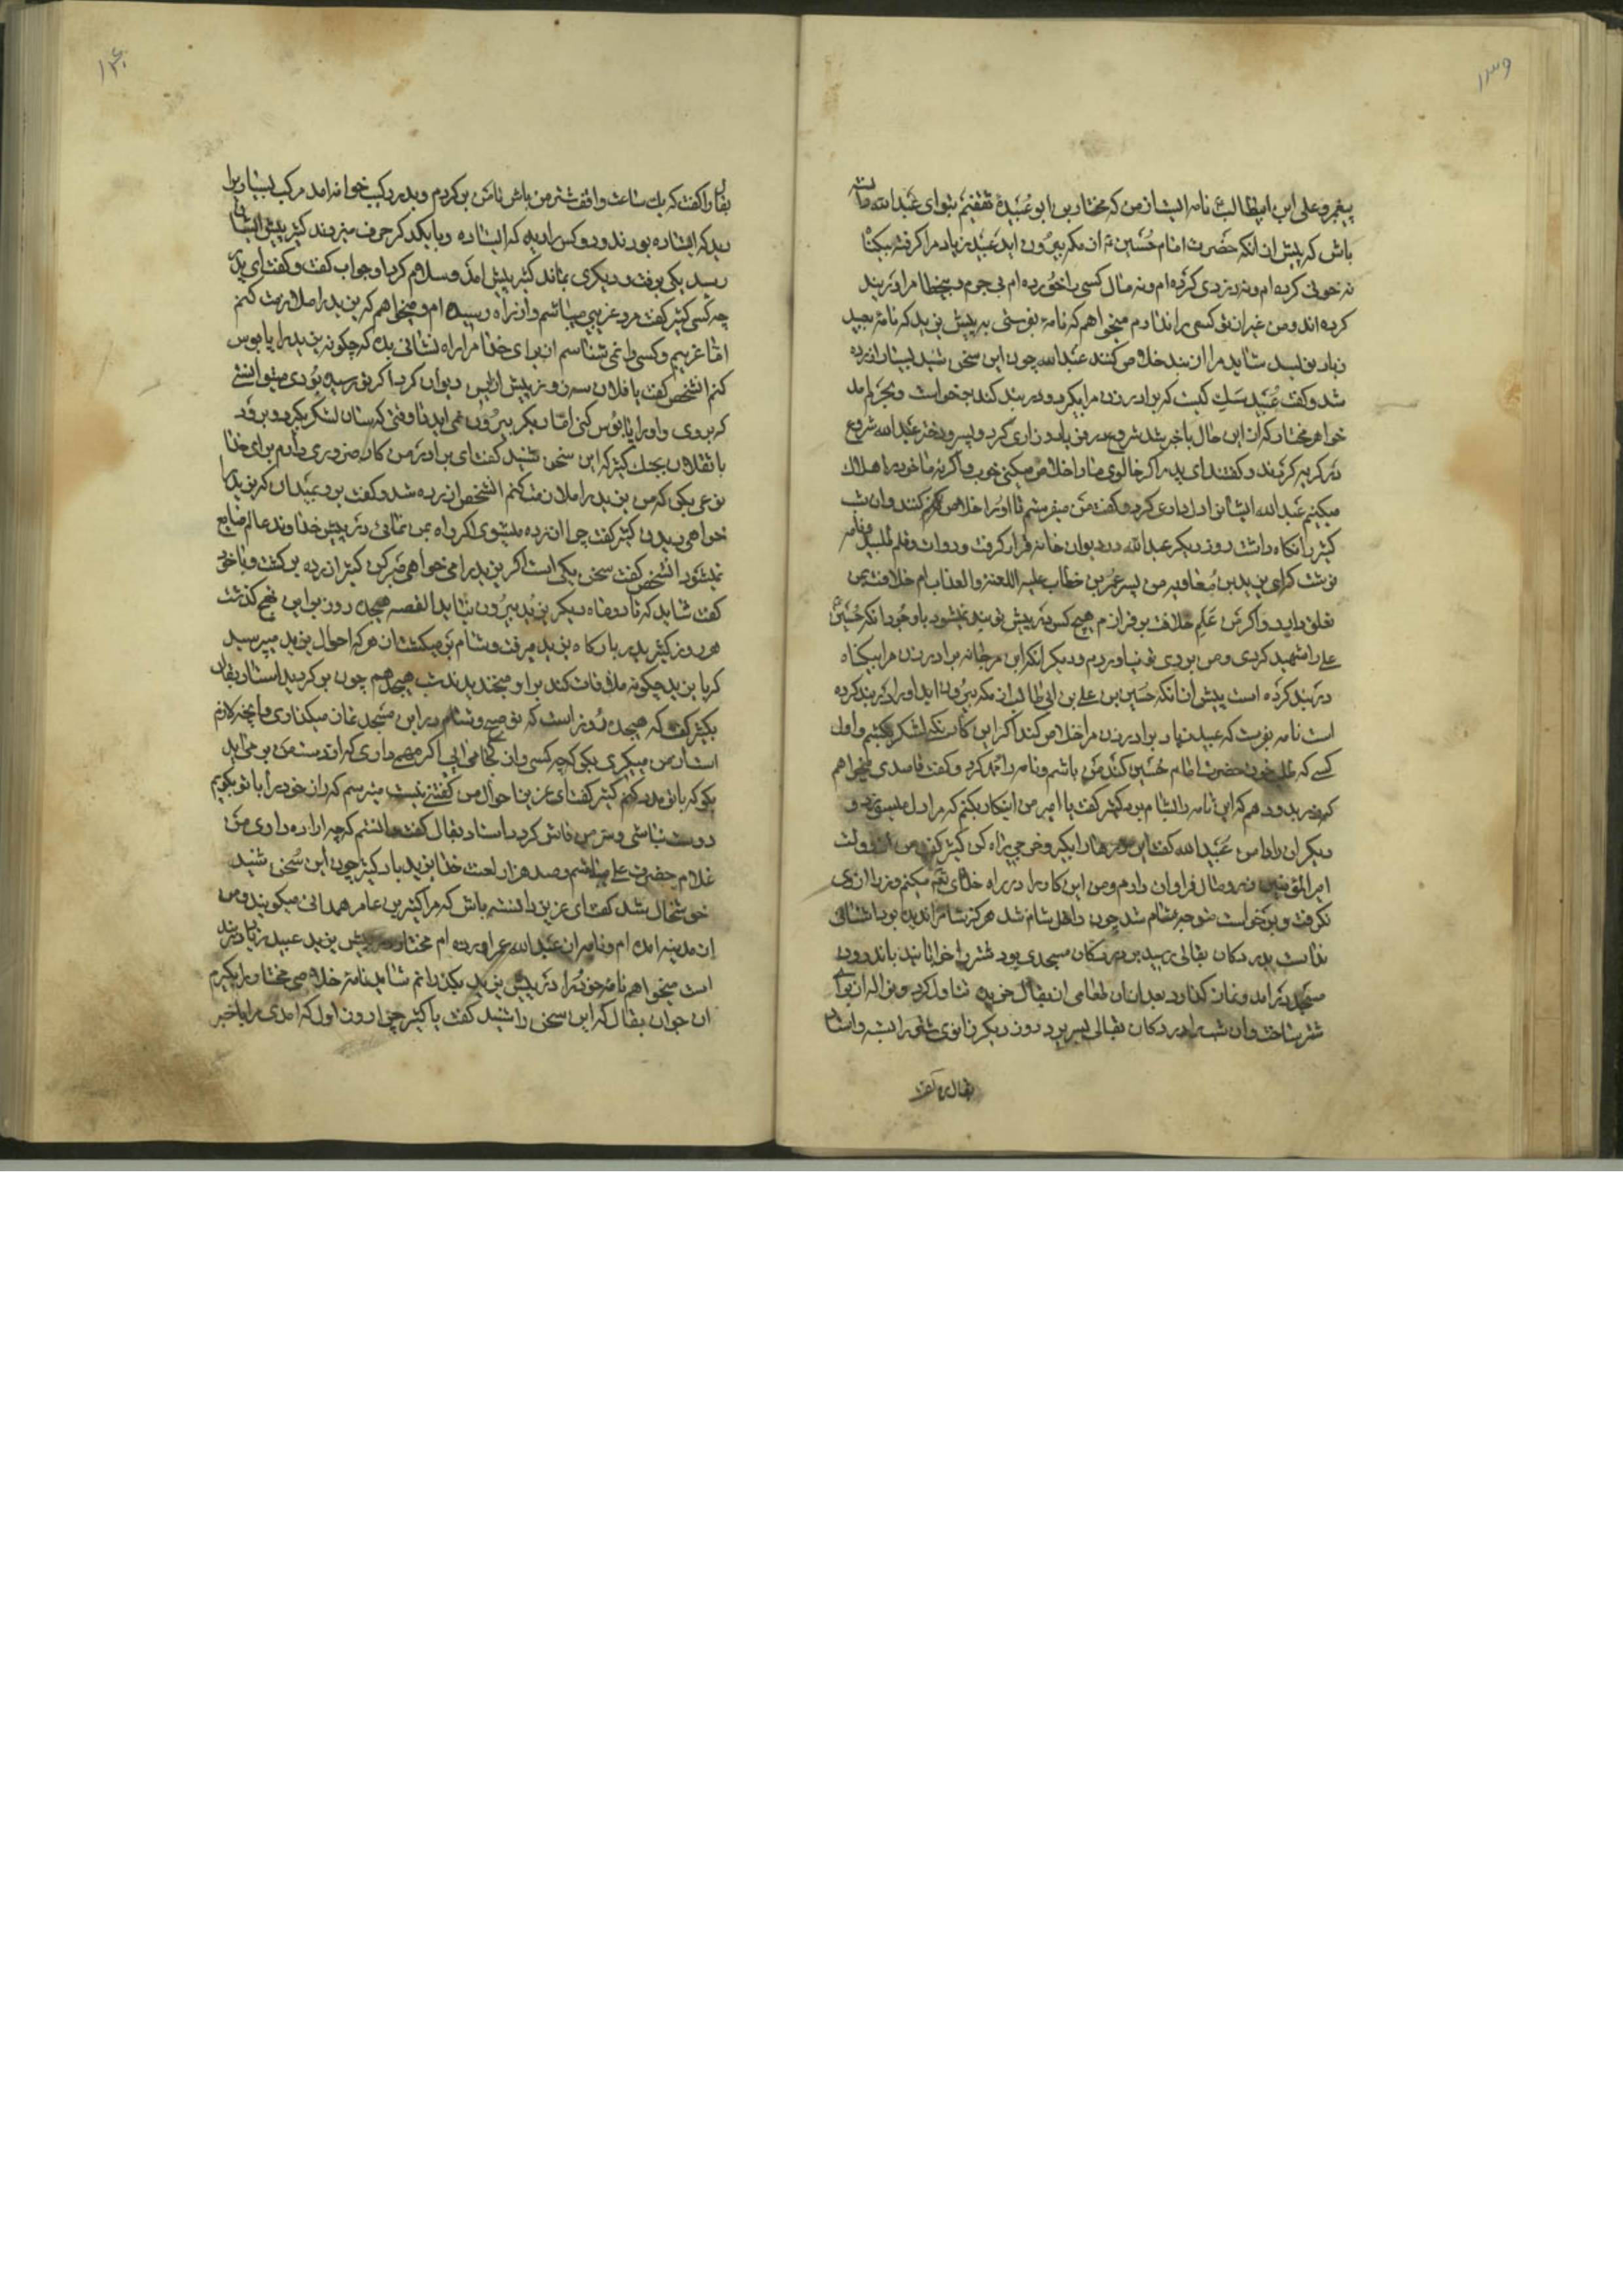 ۱۳۹
پیغمبر و علی ابن ابیطالب نامه ایشان من که مختار بن ابو عبیدهٔ ثقفیم بتو ای عبدالله
باش که پیش از انکه حضرت امام حسین از مکه بیرون اید عبید زیاد مرا کرفته بیکناه
نه خونی کرده ام و نه دزدی کرده ام و نه مال کسی را خورده ام بی جرم و بیخطا مرا در بند
کرده اند و من غیر از تو کسی را ندارم میخواهم که نامهٔ بفرستی به پیش یزید که نامه بعبید
زیاد بنویسد شاید مرا از بند خلاص کنند عبدالله چون این سخن شنید بسیار ازرده
شد و کفت عبید سک کیست که برادر زن مرا بکیرد و در بند کند برخواست و بحرم امد
خواهر مختار که از این حال با خبر شد شروع در فریاد و زاری کرد و پسر و دختر عبدالله شروع
در کریه کردند و کفتند ای پدر اکر خالوی ما را خلاص میکنی خوب و اکر نه ما خود را هلاک
میکنیم عبدالله ایشانرا دلداری کرد و کفت من میفرستم تا او را خلاص کنند و ان شب
کثیر را نکاه داشت روز دیکر عبدالله در دیوان خانه قرار کرفت و دوات و قلم طلبید و نامه
نوشت که ای یزید بن معاویه من پسر عمر بن خطاب علیه اللعنة والعذاب ام خلافت بمن
تعلق دارد و اکر من علم خلافت بر فرازم هیچ کس در پیش تو بند نمیشود با وجود انکه حسین
علی را شهید کردی و من بروی تو نیاوردم و دیکر انکه ابن مرجانه برادر زن مرا بیکناه
در بند کرده است پیش از انکه حسین بن علی بن ابی طالب از مکه بیرون اید او را در بند کرده
است نامه بنویس که عبید زیاد برادر زن مرا خلاص کند اکر این کار نکنی لشکر بکشم و اول
کسی که طلب خون حضرت امام حسین کند من باشم و نامه را مهر کرد و کفت قاصدی میخواهم
که زر بدو دهم که این نامه را بشام برد کثیر کفت یا امیر من اینکار بکنم که مرا دل میسوزد و
دیکران را دل من عبیدالله کفت این زرها را بکیر و خرجی راه کن کثیر کفت من از دولت
امیرالمؤمنین زر و مال فراوان دارم و من این کار را در راه خدای تع میکنم و زر از وی
نکرفت و برخواست متوجه شام شد چون داخل شام شد هرکز شام را ندیده بود اشنائی
نداشت بدر دکان بقالی رسید بر در دکان مسجدی بود شتر را خوابانید باندرون
مسجد در امد و نماز کذارد بعد از ان طعامی از بقال خرید تناول کرد و نواله از برای
شتر ساخت و ان شب را در دکان بقالی بسر برد روز دیکر زانوی شتر را بسته و استاد
بقال را کفت
۱۴۰
بقال را کفت که یک ساعت واقف شتر من باش تا من بر کردم و بدر یزید خوانه امد مرکب بسیار را
دید که ایستاده بودند و دو کس را دید که ایستاده و با یکدیکر حرف میزدند کثیر پیش ایشان
رسید یکی برفت و دیکری بماند کثیر پیش امد و سلام کرد او جواب کفت و کفت ای پدر
چه کسی کثیر کفت مرد غریبی میباشم و از راه رسیده ام و میخواهم که یزید را ملازمت کنم
اما غریبم و کسی را نمی شناسم از برای خدا مرا راه نشانی بده که چکونه یزید را پابوس
کنم انشخص کفت یا فلان سه روز پیش ازین دیوان کرد اکر تو رسیده بودی میتوانستی
که بروی و او را پابوس کنی اما دیکر بیرون نمی اید تا وقتی که سان لشکر بکیرد و برود
با فلان بجنک کثیر که این سخن شنید کفت ای برادر من کار ضروری دارم برای خدا
نوعی بکن که من یزید را ملازمت کنم انشخص ازرده شد و کفت برو عیدان که یزید را
خواهی دید کثیر کفت چرا ازرده میشوی اکر راه بمن نمائی در پیش خداوند عالم ضایع
نمیشود انشخص کفت سخن یکی است اکر یزید را می خواهی صبر کن کثیر ازرده بر کشت و با خود
کفت شاید که تا دو ماه دیکر یزید بیرون نیاید القصه هیجده روز بر این نهج کذشت
هر روز کثیر بدر بارکاه یزید میرفت و شام بر میکشت از هر که احوال یزید میپرسید
که با یزید چکونه ملاقات کند بر او میخندیدند شب هیجدهم چون بر کردید استاد بقال
بکثیر کفت که هیجده روز است که تو صبح و شام در این مسجد نماز میکذاری و مایحتاج لازم
است از من میکیری بکو که چه کسی و از کجا می ایی اکر مهمی داری که از دست من بر می اید
بکو که با تو مدد کنم کثیر کفت ای عزیز احوال من کفتنی نیست میترسم که راز خود را با تو بکویم
دوست نباشی و سر من فاش کردد استاد بقال کفت دانستم که چه اراده داری من
غلام حضرت علی میباشم و صد هزار لعنت خدا بر یزید باد کثیر چون این سخن شنید
خوشحال شد کفت ای عزیز دانسته باش که مرا کثیر بن عامر همدانی میکویند و من
از مدینه امده ام و نامه از عبدالله عمر اورده ام مختار در پیش یزید عبید زیاد در بند
است میخواهم نامه خود را در پیش یزید بکذرانم شاید نامهٔ خلاصی مختار را بکیرم
ان جوان بقال که این سخن را شنید کفت یا کثیر چرا روز اول که امدی مرا با خبر